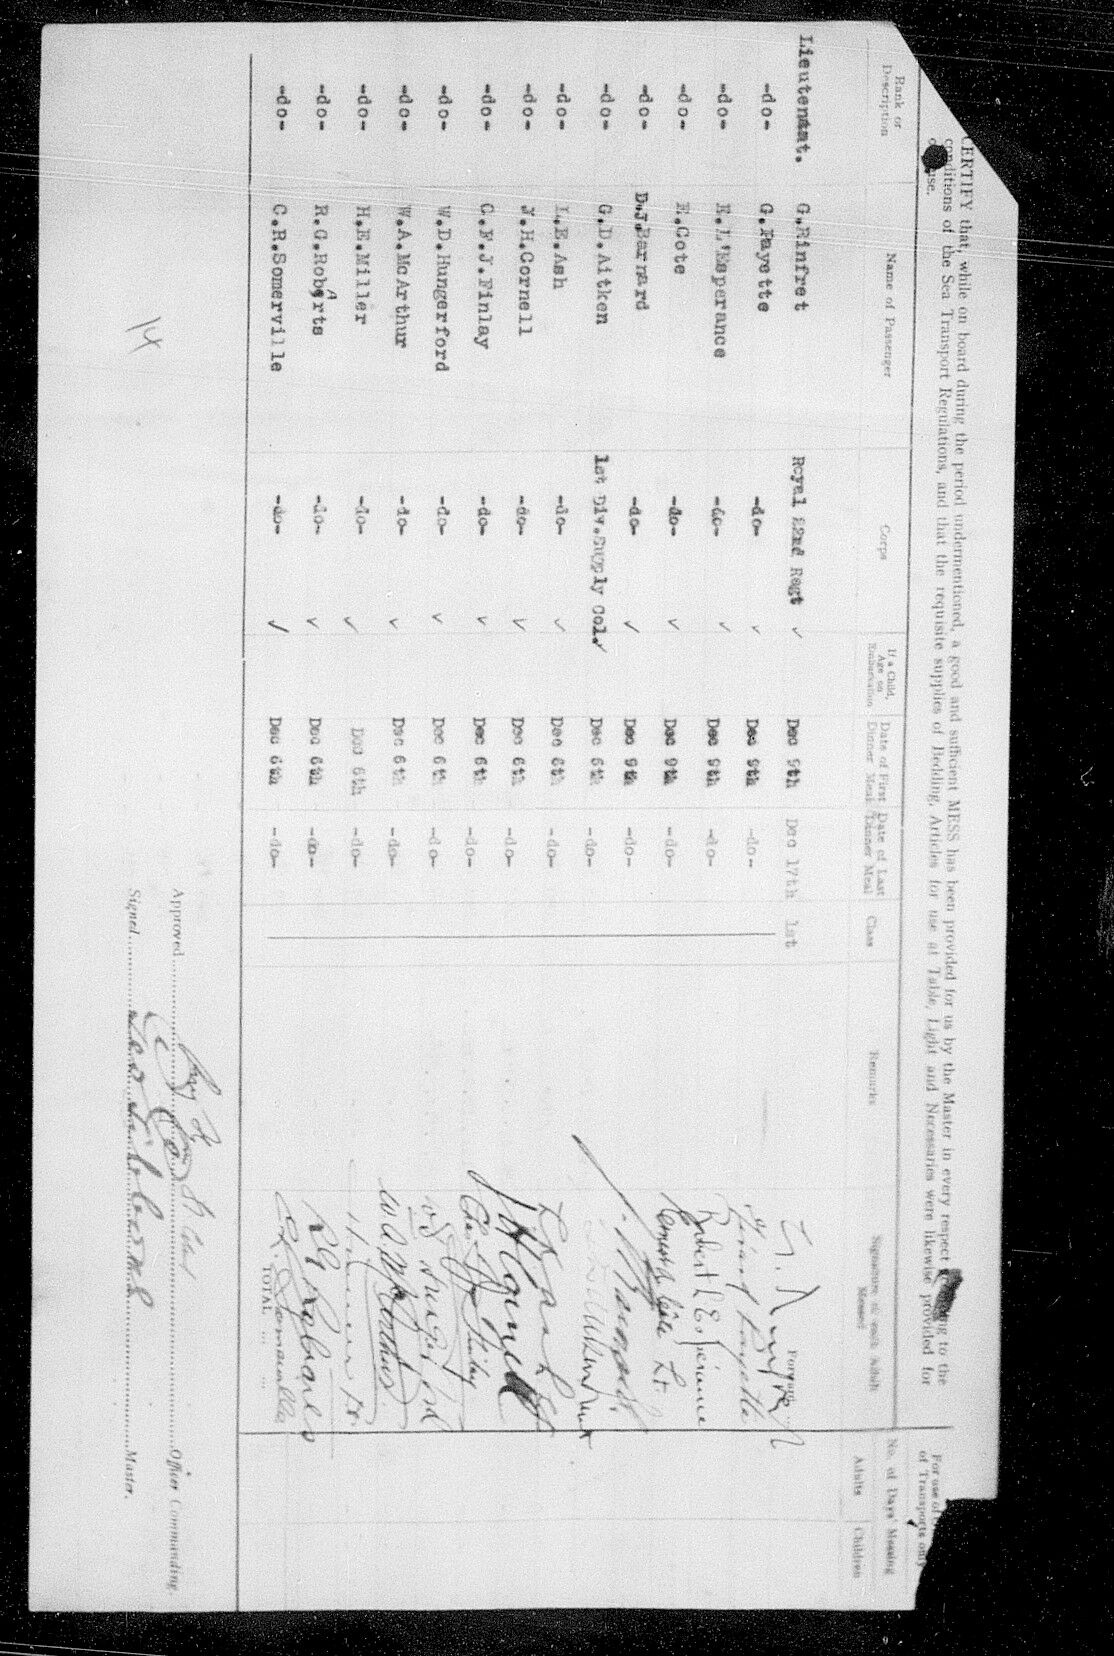 CERTIFY that, while on board during the period undermentioned, a good and sufficient MESS has been provided for us by the Master in every respect to the
conditions of the Sea Transport Regulations, and that the requisite supplies of Bedding, Articles for use at Table, Light and Necessaries were likewise provided for
use.
For use of
of Transports only
Rank or Description Name of Passenger Corps If a Child, Age on Embarkation Date of First Dinner Meal Date of Last Dinner Meal Class Remarks Signature of each Adult Messed No. of Days' Messing
Adults Children
Forward
Lieutenant. G.Rinfret Royal 22nd Regt ✓ Dec 9th Dec 17th 1st
-do- G.Payette -do- ✓ Dec 9th -do- Payette
-do- R.L'Esperance -do- ✓ Dec 9th -do- Robert L'Esperance
-do- E.Cote -do- ✓ Dec 9th -do- Cote Lt.
-do- D.J.Barnard -do- ✓ Dec 9th -do- J. Barnard
-do- G.D.Aitken 1st Div.Supply Col. ✓ Dec 6th -do- Aitken Lieut
-do- L.E.Ash -do- ✓ Dec 6th -do- L E Ash Lt
-do- J.H.Cornell -do- ✓ Dec 6th -do- J H Cornell
-do- C.F.J.Finlay -do- ✓ Dec 6th -do- Finlay
-do- W.D.Hungerford -do- ✓ Dec 6th -do- W D Hungerford
-do- W.A.McArthur -do- ✓ Dec 6th -do- W A McArthur
-do- H.E.Miller -do- ✓ Dec 6th -do- Lt.
-do- R.G.Roberts A -do- ✓ Dec 6th -do- R G Robarts
-do- C.R.Somerville -do- ✓ Dec 6th -do- C R Somerville
TOTAL ... ...
Approved Officer Commanding.
Signed Master.
14